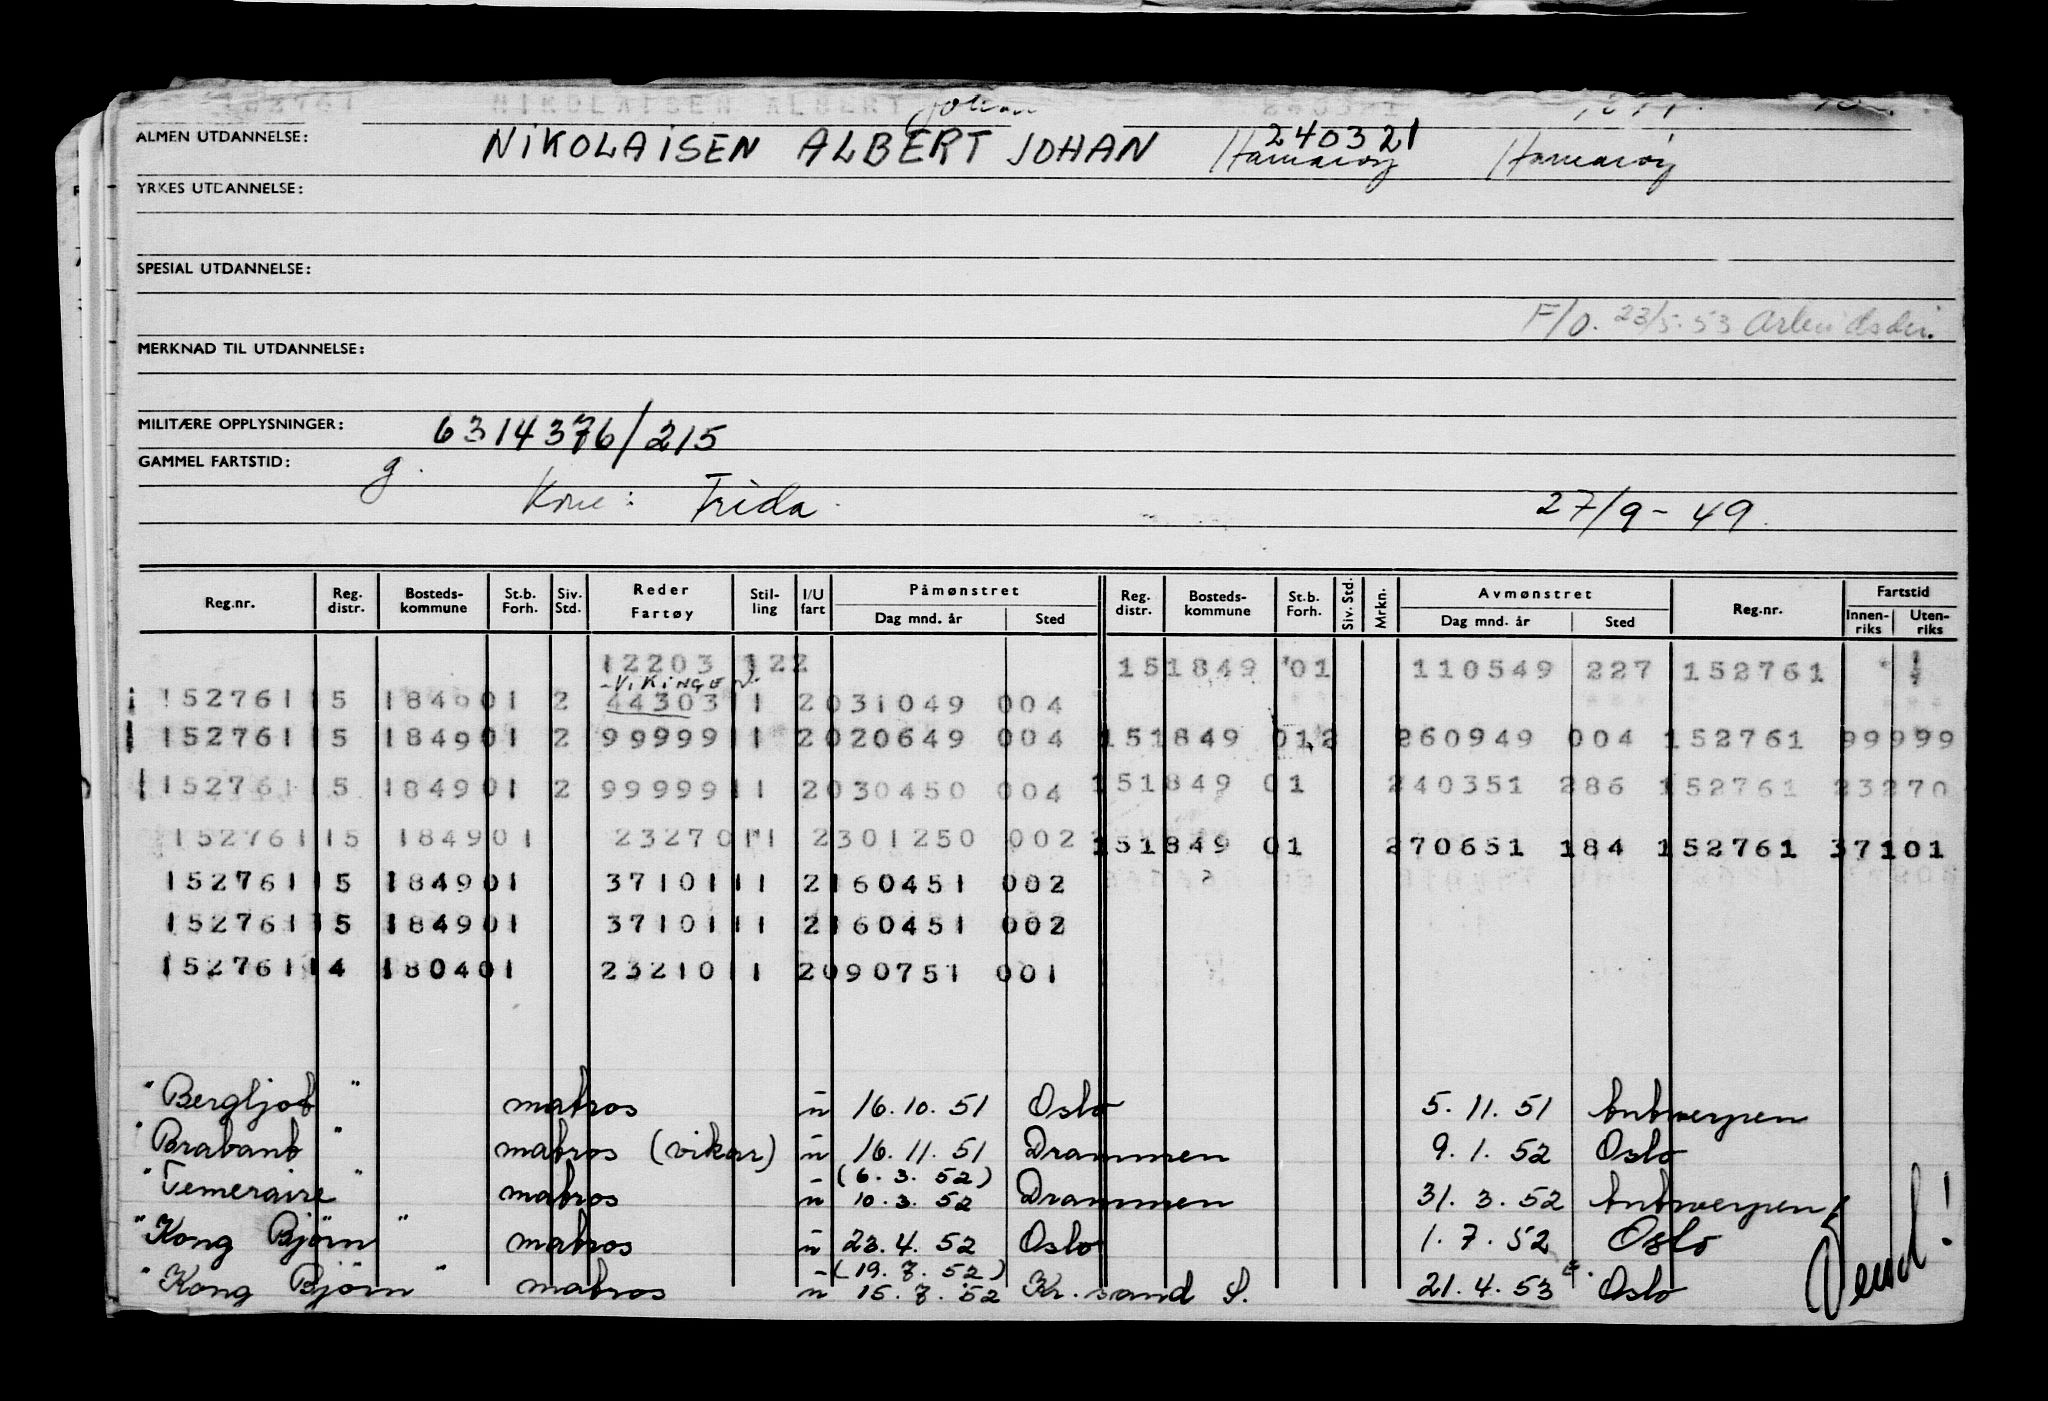 NIKOLAISEN ALBERT Johan 240321
ALMEN UTDANNELSE: NIKOLAISEN ALBERT JOHAN 240321 Hamarøy Hamarøy
YRKES UTDANNELSE:
SPESIAL UTDANNELSE:
F/O. 23/5-53 Arbeidsdir.
MERKNAD TIL UTDANNELSE:
MILITÆRE OPPLYSNINGER: 6314376/215
GAMMEL FARTSTID: g.
Kone: Frida 27/9-49
Reg.nr. Reg. distr. Bosteds-kommune St.b. Forh. Siv. Std. Reder Fartøy Stil-ling I/U fart Påmønstret Dag mnd. år Sted Reg. distr. Bosteds-kommune St.b. Forh. Siv. Std. Mrkn. Avmønstret Dag mnd. år Sted Reg.nr. Fartstid Innen-riks Uten-riks
12203 122 151849 01 110549 227 152761
VIKINGEN
152761 15 184901 2 44303 11 2031049 004
152761 15 184901 2 99999 11 2020649 004 151849 012 260949 004 152761 99999
152761 15 184901 2 99999 11 2030450 004 151849 01 240351 286 152761 23270
152761 15 184901 23270 11 2301250 002 151849 01 270651 184 152761 37101
152761 15 184901 37101 11 2160451 002
152761 15 184901 37101 11 2160451 002
152761 14 180401 23210 11 2090751 001
"Bergljot" matros u 16.10.51 Oslo 5.11.51 Antwerpen
"Brabant" matros (vikar) u 16.11.51 Drammen 9.1.52 Oslo
(6.3.52)
"Temeraire" matros u 10.3.52 Drammen 31.3.52 Antwerpen
"Kong Bjørn" matros u 23.4.52 Oslo 1.7.52 Oslo
(19.7.52)
"Kong Bjørn" matros u 15.7.52 Kr.sand S. 21.4.53 Oslo
Vend!